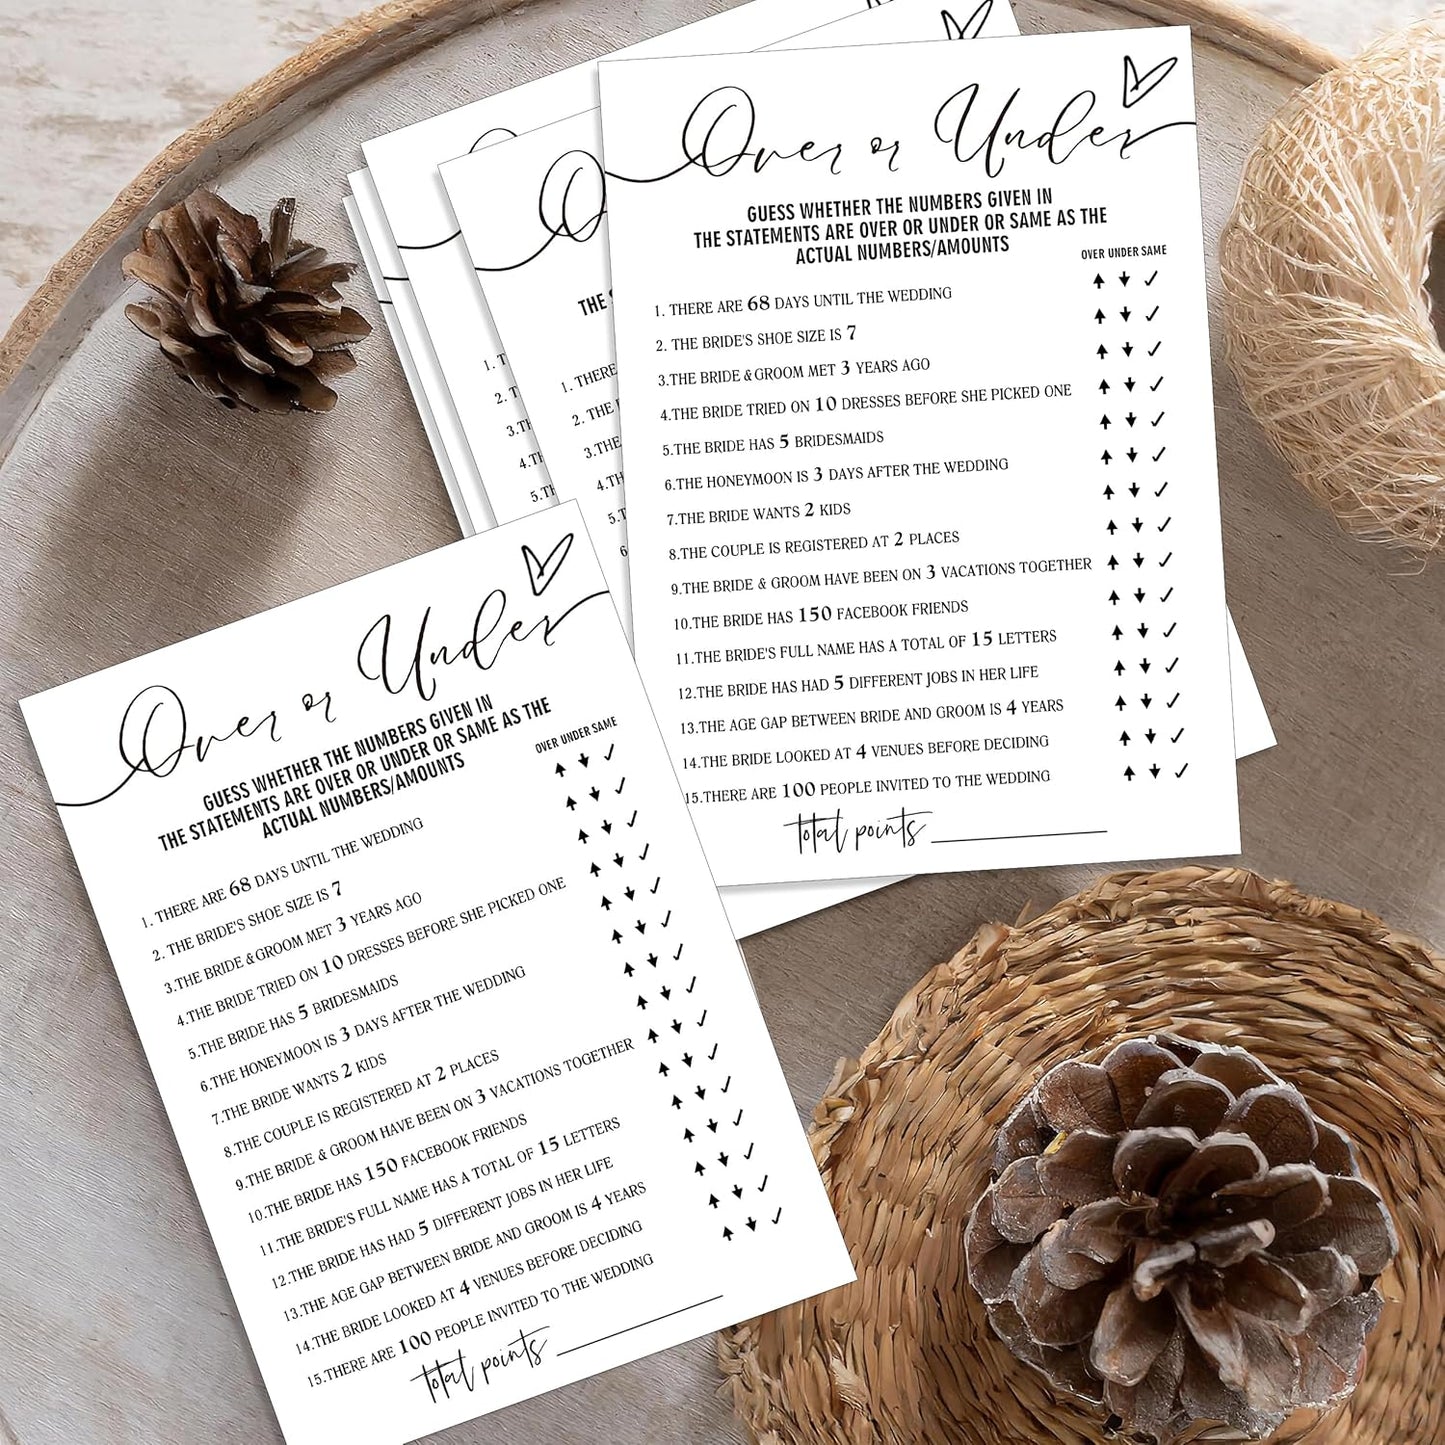 Over or Under
GUESS WHETHER THE NUMBERS GIVEN IN
THE STATEMENTS ARE OVER OR UNDER OR SAME AS THE
ACTUAL NUMBERS/AMOUNTS
OVER UNDER SAME
1. THERE ARE 68 DAYS UNTIL THE WEDDING
2. THE BRIDE'S SHOE SIZE IS 7
3.THE BRIDE & GROOM MET 3 YEARS AGO
4.THE BRIDE TRIED ON 10 DRESSES BEFORE SHE PICKED ONE
5.THE BRIDE HAS 5 BRIDESMAIDS
6.THE HONEYMOON IS 3 DAYS AFTER THE WEDDING
7.THE BRIDE WANTS 2 KIDS
8.THE COUPLE IS REGISTERED AT 2 PLACES
9.THE BRIDE & GROOM HAVE BEEN ON 3 VACATIONS TOGETHER
10.THE BRIDE HAS 150 FACEBOOK FRIENDS
11.THE BRIDE'S FULL NAME HAS A TOTAL OF 15 LETTERS
12.THE BRIDE HAS HAD 5 DIFFERENT JOBS IN HER LIFE
13.THE AGE GAP BETWEEN BRIDE AND GROOM IS 4 YEARS
14.THE BRIDE LOOKED AT 4 VENUES BEFORE DECIDING
15.THERE ARE 100 PEOPLE INVITED TO THE WEDDING
total points
Over or Under
GUESS WHETHER THE NUMBERS GIVEN IN
THE STATEMENTS ARE OVER OR UNDER OR SAME AS THE
ACTUAL NUMBERS/AMOUNTS
OVER UNDER SAME
1. THERE ARE 68 DAYS UNTIL THE WEDDING
2. THE BRIDE'S SHOE SIZE IS 7
3.THE BRIDE & GROOM MET 3 YEARS AGO
4.THE BRIDE TRIED ON 10 DRESSES BEFORE SHE PICKED ONE
5.THE BRIDE HAS 5 BRIDESMAIDS
6.THE HONEYMOON IS 3 DAYS AFTER THE WEDDING
7.THE BRIDE WANTS 2 KIDS
8.THE COUPLE IS REGISTERED AT 2 PLACES
9.THE BRIDE & GROOM HAVE BEEN ON 3 VACATIONS TOGETHER
10.THE BRIDE HAS 150 FACEBOOK FRIENDS
11.THE BRIDE'S FULL NAME HAS A TOTAL OF 15 LETTERS
12.THE BRIDE HAS HAD 5 DIFFERENT JOBS IN HER LIFE
13.THE AGE GAP BETWEEN BRIDE AND GROOM IS 4 YEARS
14.THE BRIDE LOOKED AT 4 VENUES BEFORE DECIDING
15.THERE ARE 100 PEOPLE INVITED TO THE WEDDING
total points
1. THERE
2. THE
3.THE
4.TH
5.T
6
1. T
2. T
3.TH
4.TH
5.TH